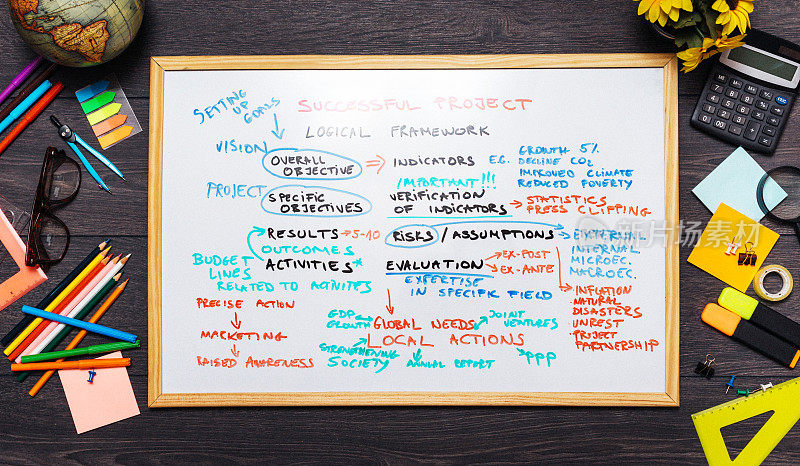 SETTING UP GOALS
SUCCESSFUL PROJECT
LOGICAL FRAMEWORK
VISION
OVERALL OBJECTIVE
INDICATORS E.G.
GROWTH 5%
DECLINE CO2
IMPROVED CLIMATE
REDUCED POVERTY
PROJECT
SPECIFIC OBJECTIVES
!IMPORTANT!!!
VERIFICATION OF INDICATORS
STATISTICS
PRESS CLIPPING
RESULTS 5-10
OUTCOMES
ACTIVITIES*
RISKS/ASSUMPTIONS
EXTERNAL
INTERNAL
MICROEC.
MACROEC.
BUDGET LINES
RELATED TO ACTIVITIES
EVALUATION
EX-POST
EX-ANTE
EXPERTISE
IN SPECIFIC FIELD
INFLATION
NATURAL DISASTERS
UNREST
PROJECT
PARTNERSHIP
PRECISE ACTION
MARKETING
RAISED AWARENESS
GDP GROWTH
GLOBAL NEEDS
JOINT VENTURES
LOCAL ACTIONS
STRENGTHENING SOCIETY
ANNUAL REPORT
PPP
iStock